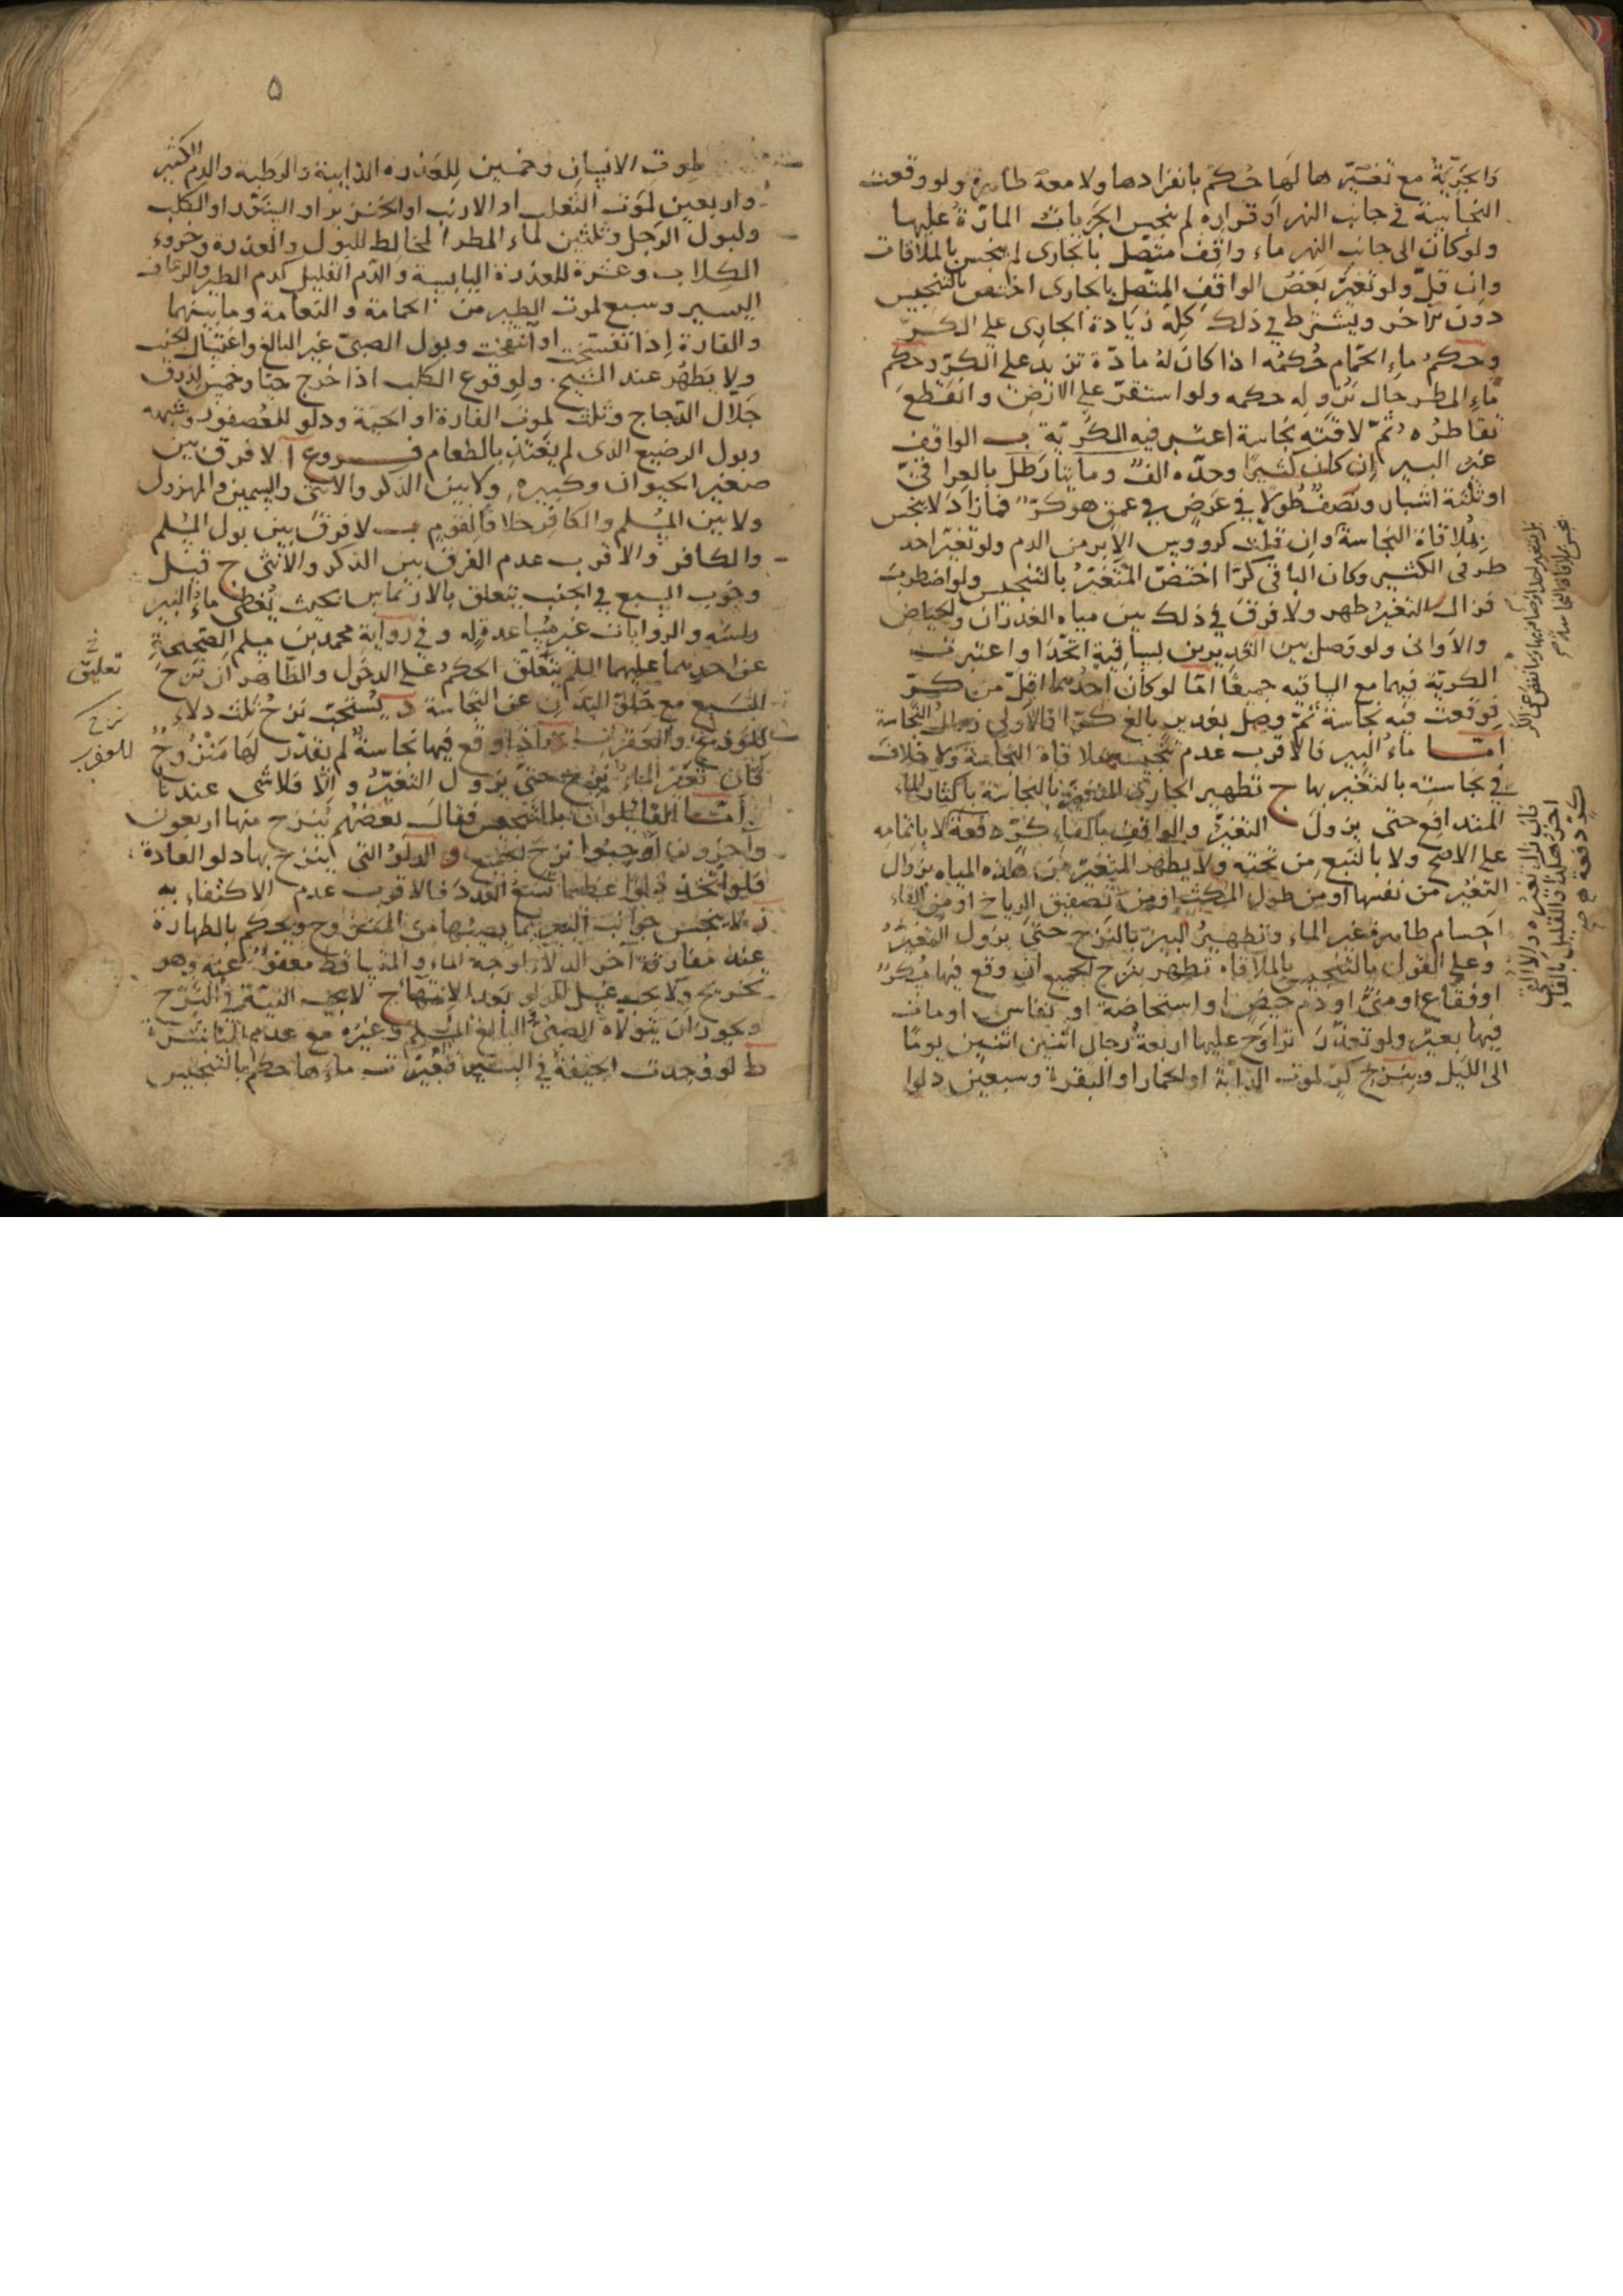 والجرية مع تغيرها لها حكم بانفرادها ولا معه طاهرة ولو وقعت
النجاسة في جانب النهر او قراره لم ينجس الجريات المارة عليها
ولو كان الى جانب النهر ماء واقف متصل بالجارى لم ينجس بالملاقات
وان قل ولو تغير بعض الواقف المتصل بالجارى اختص بالتنجيس
دون الاخر ويشترط في ذلك كله زيادة الجارى على الكر
وحكم ماء الحمام حكمه اذا كان له مادة تزيد على الكر وحكم
ماء المطر حال نزوله حكمه ولو استقر على الارض وانقطع
تقاطره ثم لاقته نجاسة اعتبر فيه الكرية ب الواقف
غير البير ان كان كثيرا وحده الف ومايتا رطل بالعراقي
او ثلثة اشبار ونصف طولا في عرض في عمق هو كر فما زاد لا ينجس
بملاقاة النجاسة وان قلت كرووس الابر من الدم ولو تغير احد
طرفى الكثير وكان الباقى كرا اختص المتغير بالتنجيس ولو اضطرب
فزال التغير طهر ولا فرق في ذلك بين مياه الغدران والحياض
والاوانى ولو وصل بين الغديرين بساقية اتحدا واعتبرت
الكرية فيهما مع الساقيه جميعا اما لو كان احدهما اقل من كر
فوقعت فيه نجاسة ثم وصل بغدير بالغ كرا فالاولى زوال النجاسة
اما ماء البير فالاقرب عدم تنجيسه بملاقاة النجاسة ولا خلاف
في نجاسته بالتغير بها ج تطهير الجارى المتغير بالنجاسة باكثار الماء
المتدافع حتى يزول التغير والواقف بالقاء كر دفعة لا باتمامه
على الاصح ولا بالنبع من تحته ولا يطهر المتغير من هذه المياه بزوال
التغير من نفسها او من طول المكث او من تصفيق الرياح او من القاء
اجسام طاهرة غير الماء وتطهير البير بالنزح حتى يزول التغير
وعلى القول بالتنجيس بالملاقاة تطهر بنزح الجميع ان وقع فيها مسكر
او فقاع او منى او دم حيض او استحاضة او نفاس او مات
فيها بعير ولو تعذر تراوح عليها اربعة رجال اثنين اثنين يوما
الى الليل وبنزح كر لموت الدابة او الحمار او البقرة وسبعين دلوا
فان زال تغيره والا القى
اخر هكذا والقليل بالقاء
كر دفعة صح
۵
لموت الانسان وخمسين للعذرة الذايبة والرطبه والدم الكثير
واربعين لموت الثعلب او الارنب او الخنزير او السنور او الكلب
ولبول الرجل وثلثين لماء المطر المخالط للبول والعذرة وخروء
الكلاب وعشرة للعذرة اليابسة والدم القليل كدم الطير والرعاف
اليسير وسبع لموت الطير من الحمامة والنعامة وما بينهما
والفارة اذا تفسخت او انتفخت وبول الصبى غير البالغ واغتسال الجنب
ولا يطهر عند الشيخ ولوقوع الكلب اذا خرج حيا وخمس لذرق
جلال الدجاج وثلث لموت الفارة او الحية ودلو للعصفور وشبهه
وبول الرضيع الذى لم يغتذ بالطعام فروع ا لا فرق بين
صغير الحيوان وكبيره ولا بين الذكر والانثى والسمين والمهزول
ولا بين المسلم والكافر خلافا لقوم ب لا فرق بين بول المسلم
والكافر والاقرب عدم الفرق بين الذكر والانثى ج قيل
وجوب السبع في الجنب يتعلق بالارتماس بحيث يغطى ماء البير
راسه والروايات غير مساعدة له وفي رواية محمد بن مسلم الصحيحة
عن احدهما عليهما السلم يتعلق الحكم على الدخول والظاهر ان نزح
السبع مع خلو البدن عن النجاسة د يستحب نزح ثلث دلاء
للوزغ والعقرب ه اذا وقع فيها نجاسة لم يقدر لها منزوح
فان تغير الماء نزح حتى يزول التغير والا فلا شى عندنا
اما القايلون بالتنجيس فقال بعضهم ينزح منها اربعون
واخرون اوجبوا نزح الجميع و الدلو التى ينزح بها دلو العادة
فلو اتخذ دلوا عظيما تسع العدد فالاقرب عدم الاكتفاء به
ز لا ينجس جوانب البير بما يصيبها من المنزوح ويحكم بالطهارة
عند مفارقة آخر الدلاء لوجه الماء والمتساقط معفو عنه وهو
تخريج ولا يجب غسل الدلو بعد الانتهاء ح لا يجب النية في النزح
ويجوز ان يتولاه الصبى والبالغ المسلم وغيره مع عدم المباشرة
ط لو وجدت الجيفة في البير فغيرت ماءها حكم بالتنجيس
تعليق
نزح
للعقرب